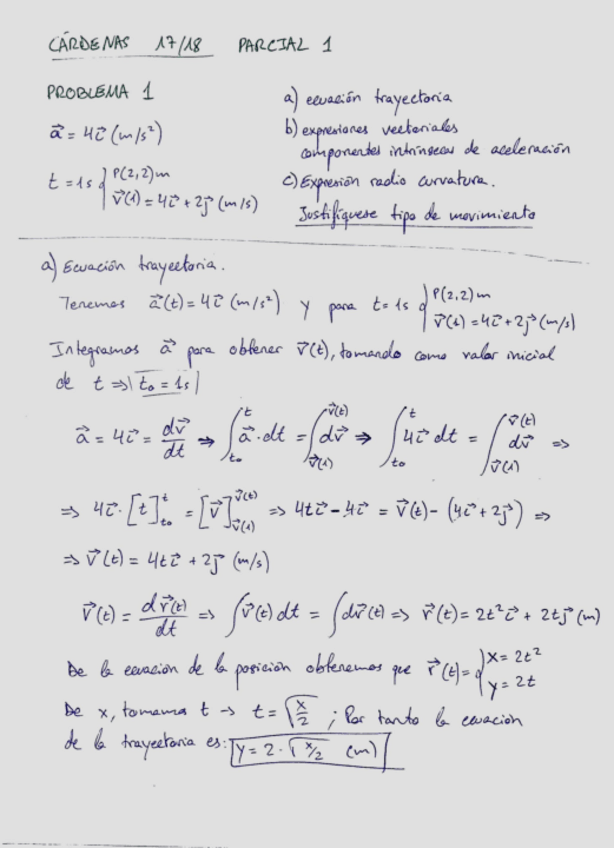 CÁRDENAS 17/18 PARCIAL 1
PROBLEMA 1
a⃗ = 4i⃗ (m/s²)
t = 1s { P(2,2)m
v⃗(1) = 4i⃗ + 2j⃗ (m/s)
a) ecuación trayectoria
b) expresiones vectoriales
componentes intrínsecas de aceleración
c) Expresión radio curvatura.
Justifíquese tipo de movimiento
a) Ecuación trayectoria.
Tenemos a⃗(t) = 4i⃗ (m/s²) y para t = 1s { P(2,2)m
v⃗(1) = 4i⃗ + 2j⃗ (m/s)
Integramos a⃗ para obtener v⃗(t), tomando como valor inicial
de t ⇒ | t₀ = 1s |
a⃗ = 4i⃗ = dv⃗/dt ⇒ ∫_{t₀}^{t} a⃗·dt = ∫_{v⃗(1)}^{v⃗(t)} dv⃗ ⇒ ∫_{t₀}^{t} 4i⃗ dt = ∫_{v⃗(1)}^{v⃗(t)} dv⃗ ⇒
⇒ 4i⃗·[t]_{t₀}^{t} = [v⃗]_{v⃗(1)}^{v⃗(t)} ⇒ 4ti⃗ - 4i⃗ = v⃗(t) - (4i⃗ + 2j⃗) ⇒
⇒ v⃗(t) = 4ti⃗ + 2j⃗ (m/s)
v⃗(t) = dr⃗(t)/dt ⇒ ∫v⃗(t)dt = ∫dr⃗(t) ⇒ r⃗(t) = 2t²i⃗ + 2tj⃗ (m)
De la ecuación de la posición obtenemos que r⃗(t) = { x = 2t²
y = 2t
De x, tomamos t → t = √(x/2) ; Por tanto la ecuación
de la trayectoria es: y = 2·√(x/2) (m)